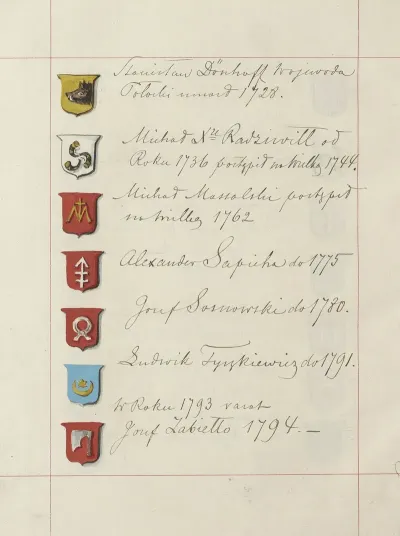 Stanisław Dönhoff Wojewoda
Połocki umarł 1728.
Michał Xże Radziwill od
Roku 1736 postąpił na Wielką 1744.
Michał Massalski postąpił
na Wielką 1762
Alexander Sapieha do 1775
Józef Sosnowski do 1780.
Ludwik Tyszkiewicz do 1791.
W Roku 1793 vacat
Józef Zabiełło 1794. —